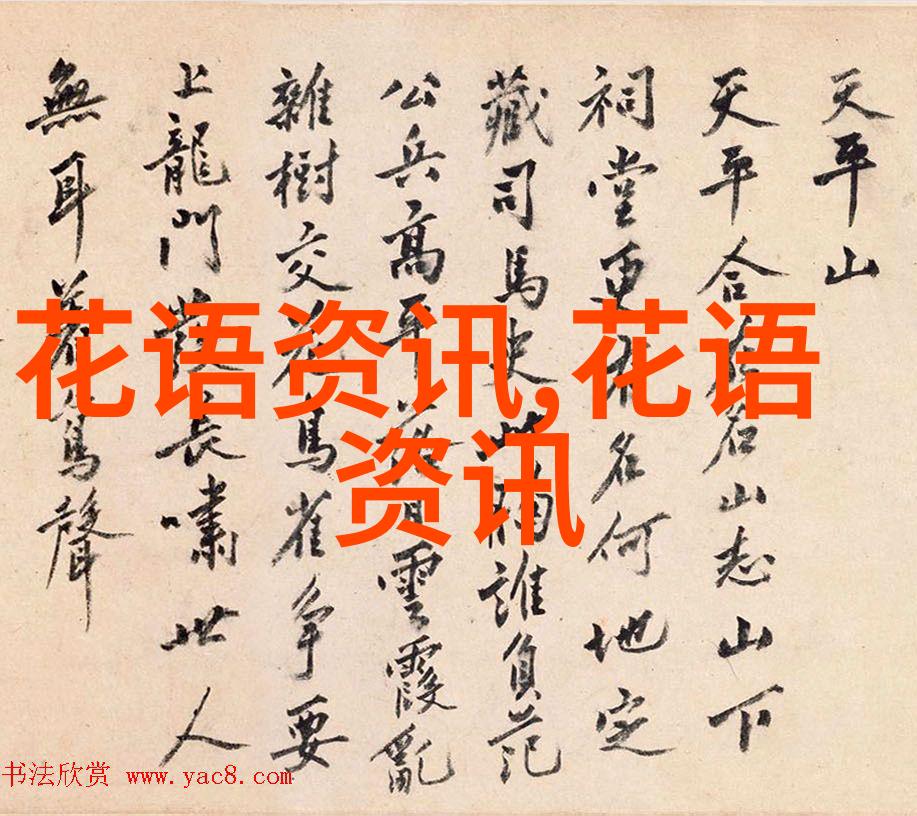 天平山
天平合名山志山下
祠堂更名何地定
藏司馬史誰負范
公兵高平雲霞亂
雜樹交花鳥雀争要
上龍門發長嘯世人
無耳聲
花语资讯,花语
资讯
书法欣赏 www.yac8.com